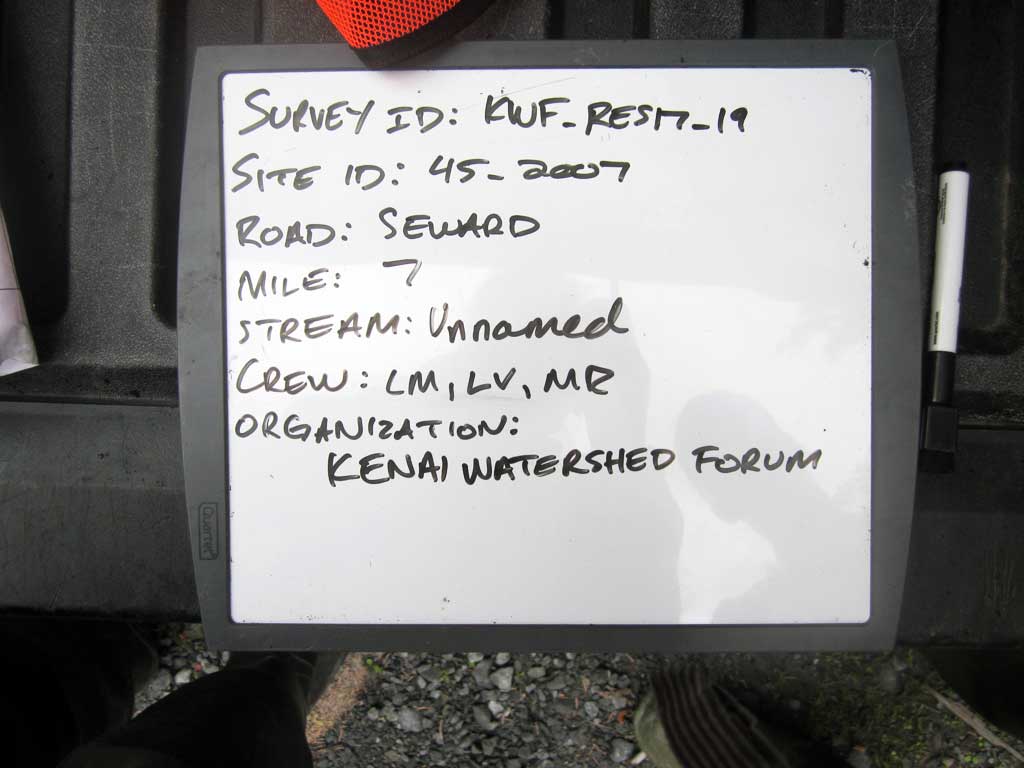 SURVEY ID: KWF_RES17_19
SITE ID: 45_2007
ROAD: SEWARD
MILE: 7
STREAM: Unnamed
CREW: LM, LV, MR
ORGANIZATION:
KENAI WATERSHED FORUM
Quartet